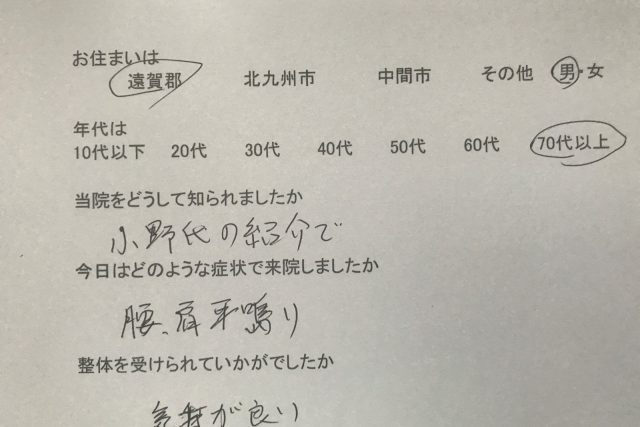 お住まいは
遠賀郡 北九州市 中間市 その他 男・女
年代は
10代以下 20代 30代 40代 50代 60代 70代以上
当院をどうして知られましたか
小野代の紹介で
今日はどのような症状で来院しましたか
腰、肩 耳鳴り
整体を受けられていかがでしたか
気持が良い